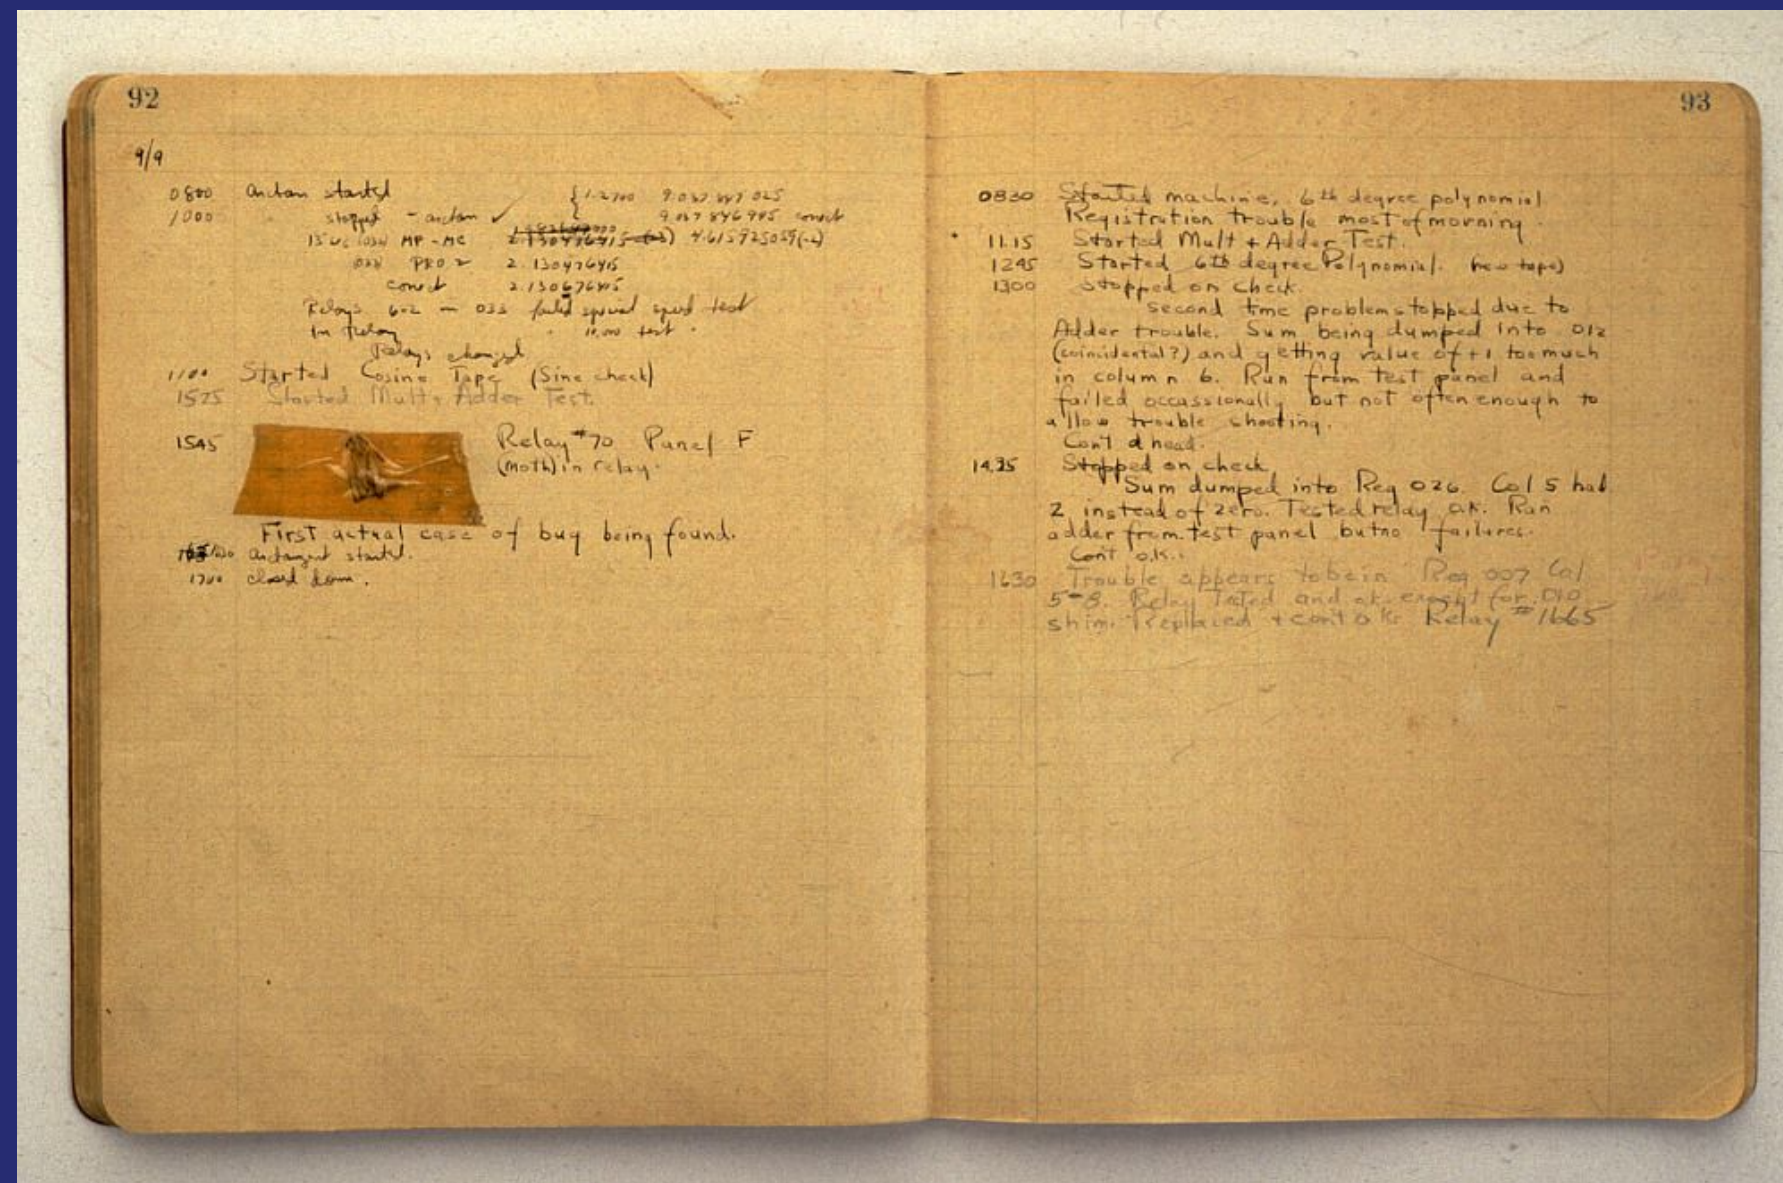 92
9/9
0800 Antan started { 1.2700 9.037 847 025
1000 " stopped - antan ✓ 9.037 846 995 correct
13"uc (032) MP - MC 2.130476415 (-3) 4.615925059(-2)
033 PRO 2 2.130476415
correct 2.130676415
Relays 6-2 in 033 failed special speed test
in Relay " 10.000 test .
Relays changed
1100 Started Cosine Tape (Sine check)
1525 Started Mult + Adder Test.
1545 Relay #70 Panel F
(Moth) in relay.
First actual case of bug being found.
1630 Antangent started.
1700 closed down.
93
0830 Started machine, 6th degree polynomial
Registration trouble most of morning.
11.15 Started Mult + Adder Test.
1245 Started 6th degree Polynomial. (new tape)
1300 Stopped on check.
second time problem stopped due to
Adder trouble. Sum being dumped into 012
(coincidental?) and getting value of +1 too much
in column 6. Run from test panel and
failed occassionally but not often enough to
allow trouble shooting.
Con't ahead.
14.35 Stopped on check
Sum dumped into Reg 026. Col 5 had
2 instead of zero. Tested relay o.k. Ran
adder from test panel but no failures.
Cont o.k.
1630 Trouble appears to be in Reg 007 Col
5-8. Relay Tested and ok except for
shim. Replaced + cont o k. Relay #1665